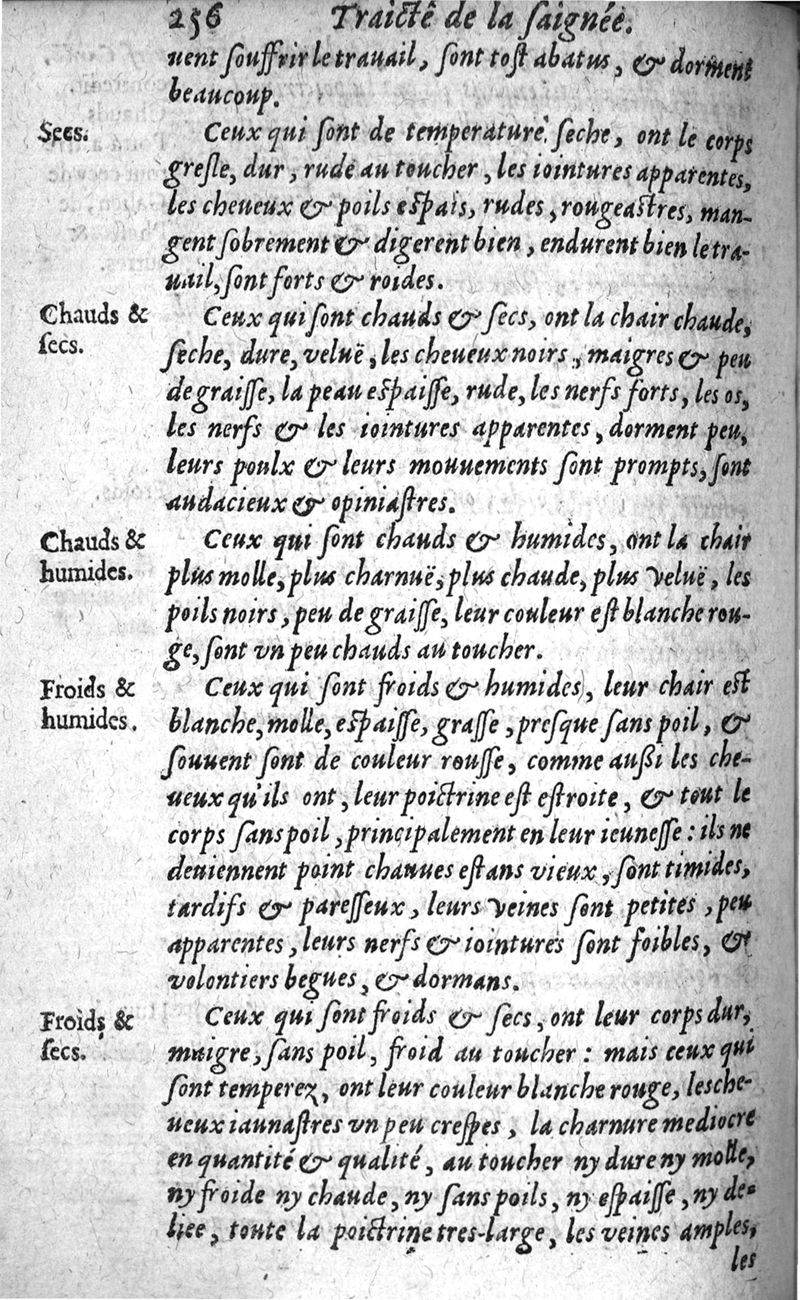 256 Traicté de la saignée.
uent souffrir le trauail, sont tost abatus, & dorment
beaucoup.
Secs.
Ceux qui sont de temperature seche, ont le corps
gresle, dur, rude au toucher, les iointures apparentes,
les cheueux & poils espais, rudes, rougeastres, man-
gent sobrement & digerent bien, endurent bien le tra-
uail, sont forts & roides.
Chauds &
secs.
Ceux qui sont chauds & secs, ont la chair chaude,
seche, dure, veluë, les cheueux noirs, maigres & peu
de graisse, la peau espaisse, rude, les nerfs forts, les os,
les nerfs & les iointures apparentes, dorment peu,
leurs poulx & leurs mouuements sont prompts, sont
audacieux & opiniastres.
Chauds &
humides.
Ceux qui sont chauds & humides, ont la chair
plus molle, plus charnuë, plus chaude, plus veluë, les
poils noirs, peu de graisse, leur couleur est blanche rou-
ge, sont vn peu chauds au toucher.
Froids &
humides.
Ceux qui sont froids & humides, leur chair est
blanche, molle, espaisse, grasse, presque sans poil, &
souuent sont de couleur rousse, comme aussi les che-
ueux qu'ils ont, leur poictrine est estroite, & tout le
corps sans poil, principalement en leur ieunesse : ils ne
deuiennent point chauues estans vieux, sont timides,
tardifs & paresseux, leurs veines sont petites, peu
apparentes, leurs nerfs & iointures sont foibles, &
volontiers begues, & dormans.
Froids &
secs.
Ceux qui sont froids & secs, ont leur corps dur,
maigre, sans poil, froid au toucher : mais ceux qui
sont temperez, ont leur couleur blanche rouge, les che-
ueux iaunastres vn peu crespes, la charnure mediocre
en quantité & qualité, au toucher ny dure ny molle,
ny froide ny chaude, ny sans poils, ny espaisse, ny de-
liee, toute la poictrine tres-large, les veines amples,
les